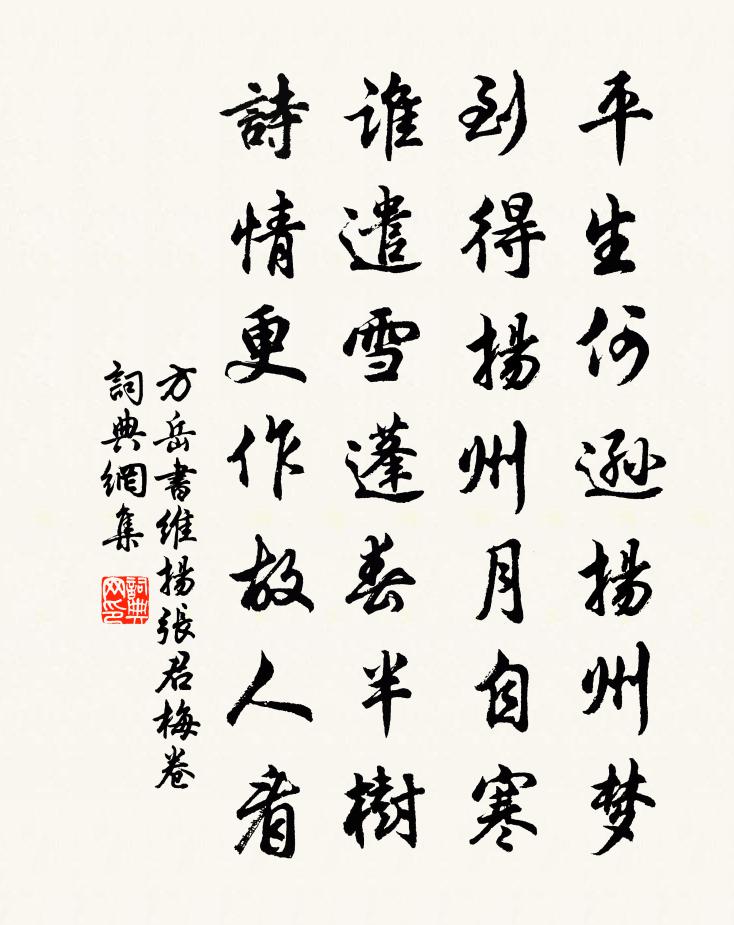 平生何遜揚州梦
到得揚州月自寒
誰遣雪蓬春半樹
詩情更作故人看
方岳書維揚張君梅卷
詞典網集
詞典
网印